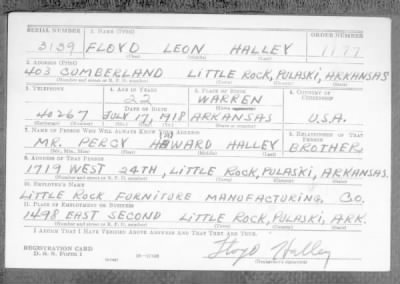 SERIAL NUMBER 1. NAME (Print) ORDER NUMBER
3139 FLOYD LEON HALLEY 1177
(First) (Middle) (Last)
2. ADDRESS (Print)
403 CUMBERLAND LITTLE ROCK, PULASKI, ARKANSAS
(Number and street or R. F. D. number) (Town) (County) (State)
3. TELEPHONE 4. AGE IN YEARS 5. PLACE OF BIRTH 6. COUNTRY OF CITIZENSHIP
22 WARREN
DATE OF BIRTH (Town or county)
40267 JULY 17, 1918 ARKANSAS U.S.A.
(Exchange) (Number) (Mo.) (Day) (Yr.) (State or country)
7. NAME OF PERSON WHO WILL ALWAYS KNOW YOUR ADDRESS 8. RELATIONSHIP OF THAT PERSON
MR. PERCY HOWARD HALLEY BROTHER
(Mr., Mrs., Miss) (First) (Middle) (Last)
9. ADDRESS OF THAT PERSON
1719 WEST 24TH, LITTLE ROCK, PULASKI, ARKANSAS.
(Number and street or R. F. D. number) (Town) (County) (State)
10. EMPLOYER'S NAME
LITTLE ROCK FURNITURE MANUFACTURING CO.
11. PLACE OF EMPLOYMENT OR BUSINESS
1498 EAST SECOND LITTLE ROCK, PULASKI, ARK.
(Number and street or R. F. D. number) (Town) (County) (State)
I AFFIRM THAT I HAVE VERIFIED ABOVE ANSWERS AND THAT THEY ARE TRUE.
REGISTRATION CARD
D. S. S. Form 1
Floyd Halley
(Registrant's signature)